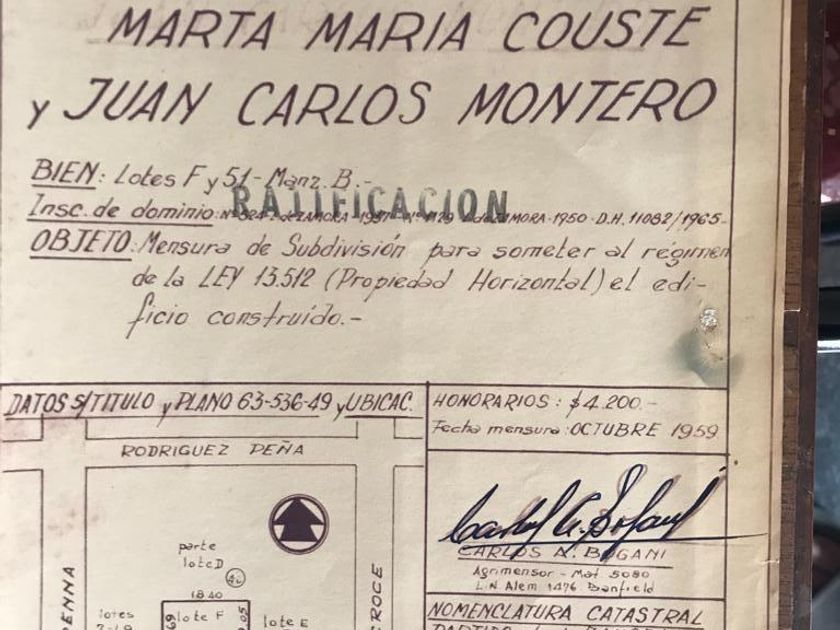 MARTA MARIA COUSTE
y JUAN CARLOS MONTERO
BIEN: Lotes F y 51- Manz. B.-
RATIFICACION
Insc. de dominio: ZAMORA 1937 ZAMORA-1950-D.H. 11082/1965-
OBJETO: Mensura de Subdivisión para someter al régimen
de la LEY 13.512 (Propiedad Horizontal) el edi-
ficio construido.-
DATOS S/TITULO y PLANO 63-536-49 y UBICAC.
HONORARIOS: $4.200.-
Fecha mensura: OCTUBRE 1959
RODRIGUEZ PEÑA
CARLOS A. BOGANI
Agrimensor - Mat. 5080
L.N. Alem 1476 Banfield
parte
lote D
18.40
lotes
lote F
lote E
ENNA
CROCE
NOMENCLATURA CATASTRAL